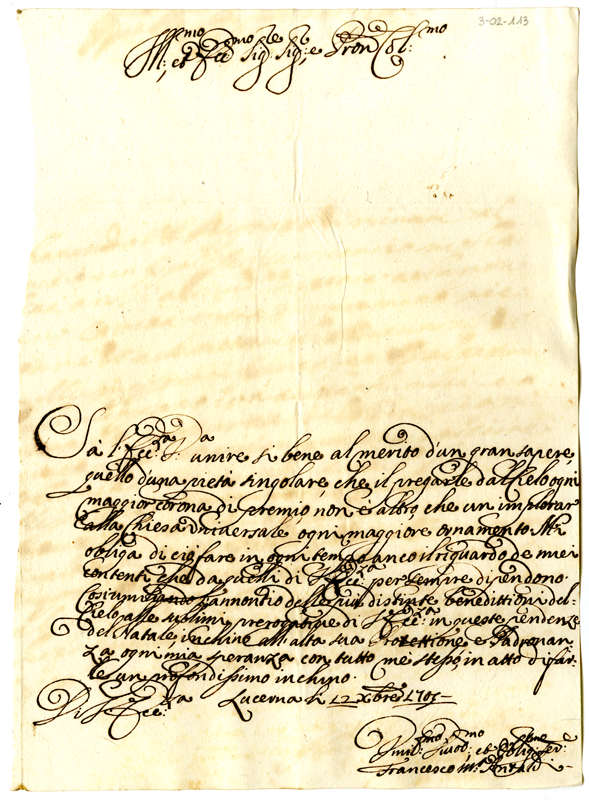 3-02-113
Ill:mo et Ecc:mo Sig:re Sig:re e Pron Col:mo
Sà l'Ecc:za V:a unire si bene al merito d'un gran sapere,
quello d'una pietà singolare, che il pregarle dal Cielo ogni
maggior corona di premio, non è altro che un implorar
alla Chiesa Universale ogni maggiore ornamento. Mi
obliga di ciò fare in ogni tempo anco il riguardo de miei
contenti che da quelli di V. Ecc:za per sempre dipendono.
Così l'annontio delle più distinte benedittioni del
Cielo alle sublimi prerogative di V. Ecc:za in queste pendenze
del Natale inchino all'alta sua Protettione e Padronan
za ogni mia speranza con tutto me stesso, in atto di far-
le un profondissimo inchino.
Di V. Ecc:za Lucerna li 12 Xbre 1701
Humil:mo Divot:mo et Oblig:mo Ser:re
Francesco M:a